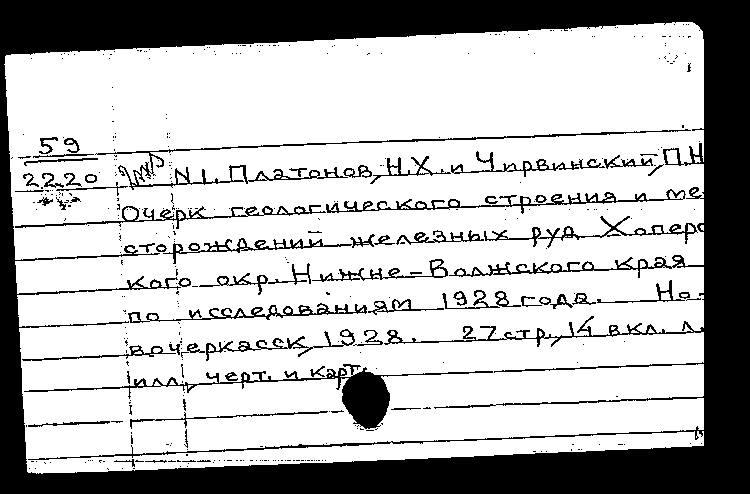 59
2220
N1. Платонов, Н.Х. и Чирвинский, П.Н
Очерк геологического строения и ме-
сторождений железных руд Хоперс
кого окр. Нижне-Волжского края
по исследованиям 1928 года. Но-
вочеркасск, 1928. 27 стр., 14 вкл. л.
илл., черт. и карт.